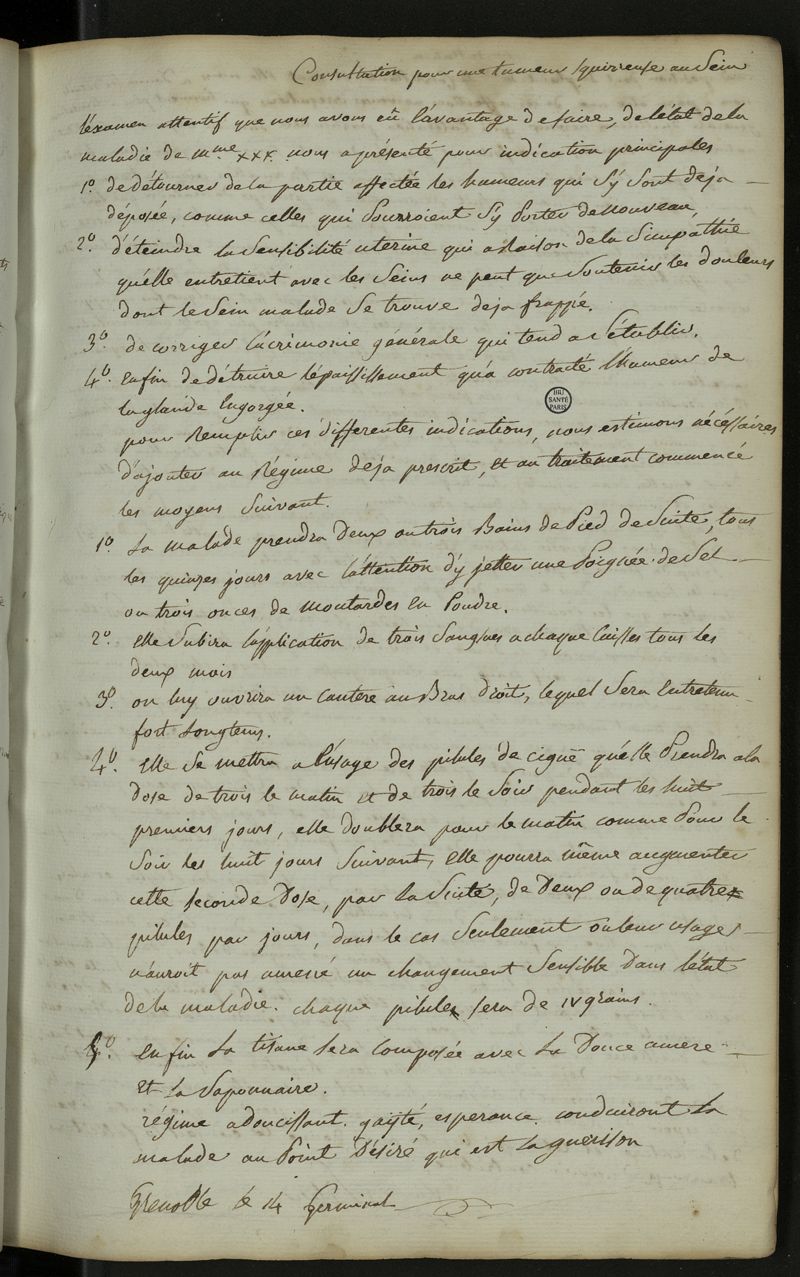 Consultation pour une tumeur squirreuse au Sein
l'éxamen attentif que nous avons eû l'avantage de faire, de l'état de la
maladie de mme xxx nous a présenté pour indication principales
1o. de détourner de la partie affectée les humeurs qui s'y sont deja
déposée, comme celles qui Pourroient S'y Porter de nouveau,
2o. d'éteindre la Sensibilité uterine qui a Raison de la Simpathie
qu'elle entretient avec les Seins ne peut que Soutenir les douleurs
dont le Sein malade Se trouve deja frappé.
3o. de corriger l'acrimonie générale qui tend a S'établir.
4o. Enfin de détruire l'épaississement qu'a contracté l'humeur de
la glande Engorgée.
pour Remplir ces differentes indications, nous estimons nécéssaires
d'ajouter au Régime deja prescrit, et au traitement commencé
les moyens Suivant.
1o. La malade prendra Deux ou trois Bains de Pied de Suite, tous
les quinzes jours avec l'attention d'y jetter une Poignée de Sel
ou trois onces de moutardes En Poudre.
2o. elle Subira l'application de trois Sangsues a chaque Cuisses tous les
deux mois
3o. on luy ouvrira un cautere au Bras droit, lequel Sera Entretenu
fort Longtems.
4o. Elle Se mettra a l'usage des pilules de ciguë qu'elle Prendra a la
Dose de trois le matin et de trois le Soir pendant les huit
premiers jours, elle doublera pour le matin comme Pour le
Soir les huit jours Suivant, Elle pourra même augmenter
cette seconde Dose, par la Suite, de Deux ou de quatre
pilules par jours, dans le cas Seulement ou leur usage
n'auroit pas amené un changement Sensible Dans l'état
de la maladie. chaque pilule sera de IV grains.
5o. Enfin La tisane Sera Composée avec La Douce amere
Et La Saponnaire.
régime adoucissant. gayté, esperance conduiront La
malade au Point Désiré qui est La guerison
Grenoble le 14 Germinal
BIU
SANTÉ
PARIS